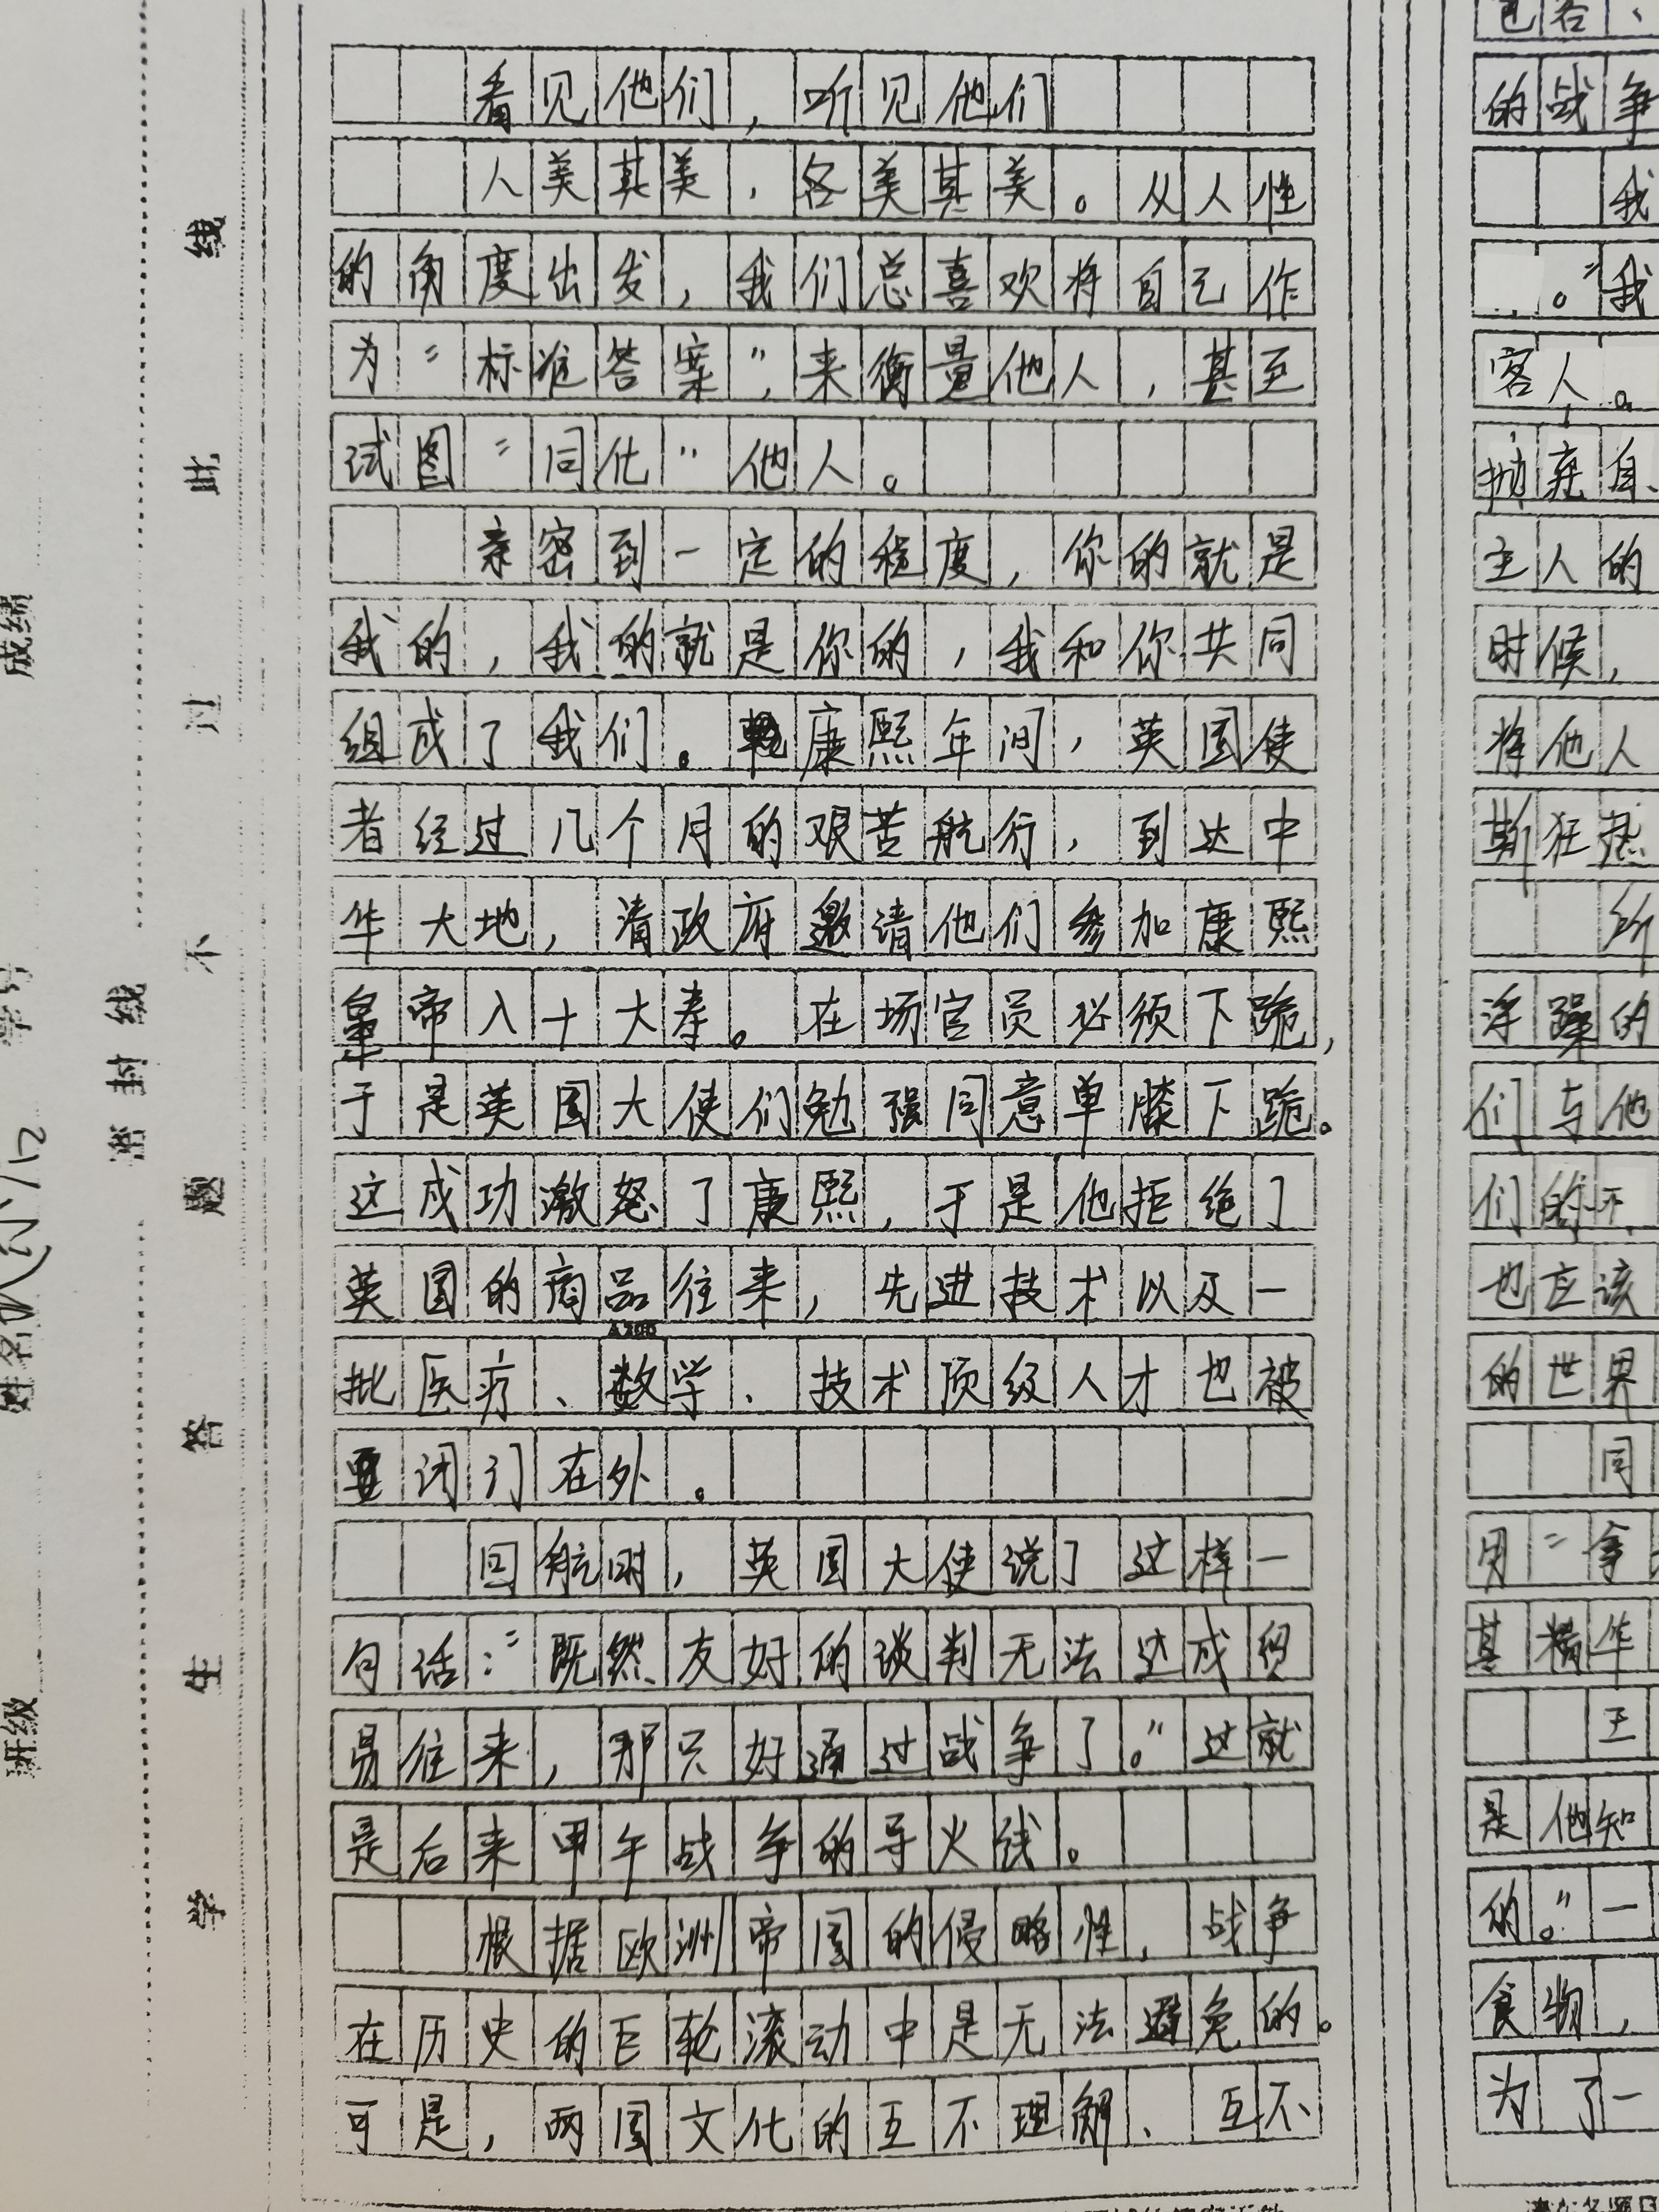 看见他们，听见他们
人美其美，各美其美。从人性
的角度出发，我们总喜欢将自己作
为“标准答案”，来衡量他人，甚至
试图“同化”他人。
亲密到一定的程度，你的就是
我的，我的就是你的，我和你共同
组成了我们。康熙年间，英国使
者经过几个月的艰苦航行，到达中
华大地，清政府邀请他们参加康熙
皇帝八十大寿。在场官员必须下跪，
于是英国大使们勉强同意单膝下跪。
这成功激怒了康熙，于是他拒绝了
英国的商品往来，先进技术以及一
批医疗、数学、技术顶级人才也被
闭门在外。
回航时，英国大使说了这样一
句话：“既然友好的谈判无法达成贸
易往来，那只好通过战争了。”这就
是后来甲午战争的导火线。
根据欧洲帝国的侵略性，战争
在历史的巨轮滚动中是无法避免的。
可是，两国文化的互不理解、互不
A200
的战争
我
。”我
客人。
抛弃自
主人的
时候，
将他人
斯狂热
所
浮躁的
们与他
们的不
也应该
的世界
同
用“拿
其精华
王
是他知
的。”一
食物，
为了一
成绩
学号
姓名
班级
密封线
学生答题不过此线